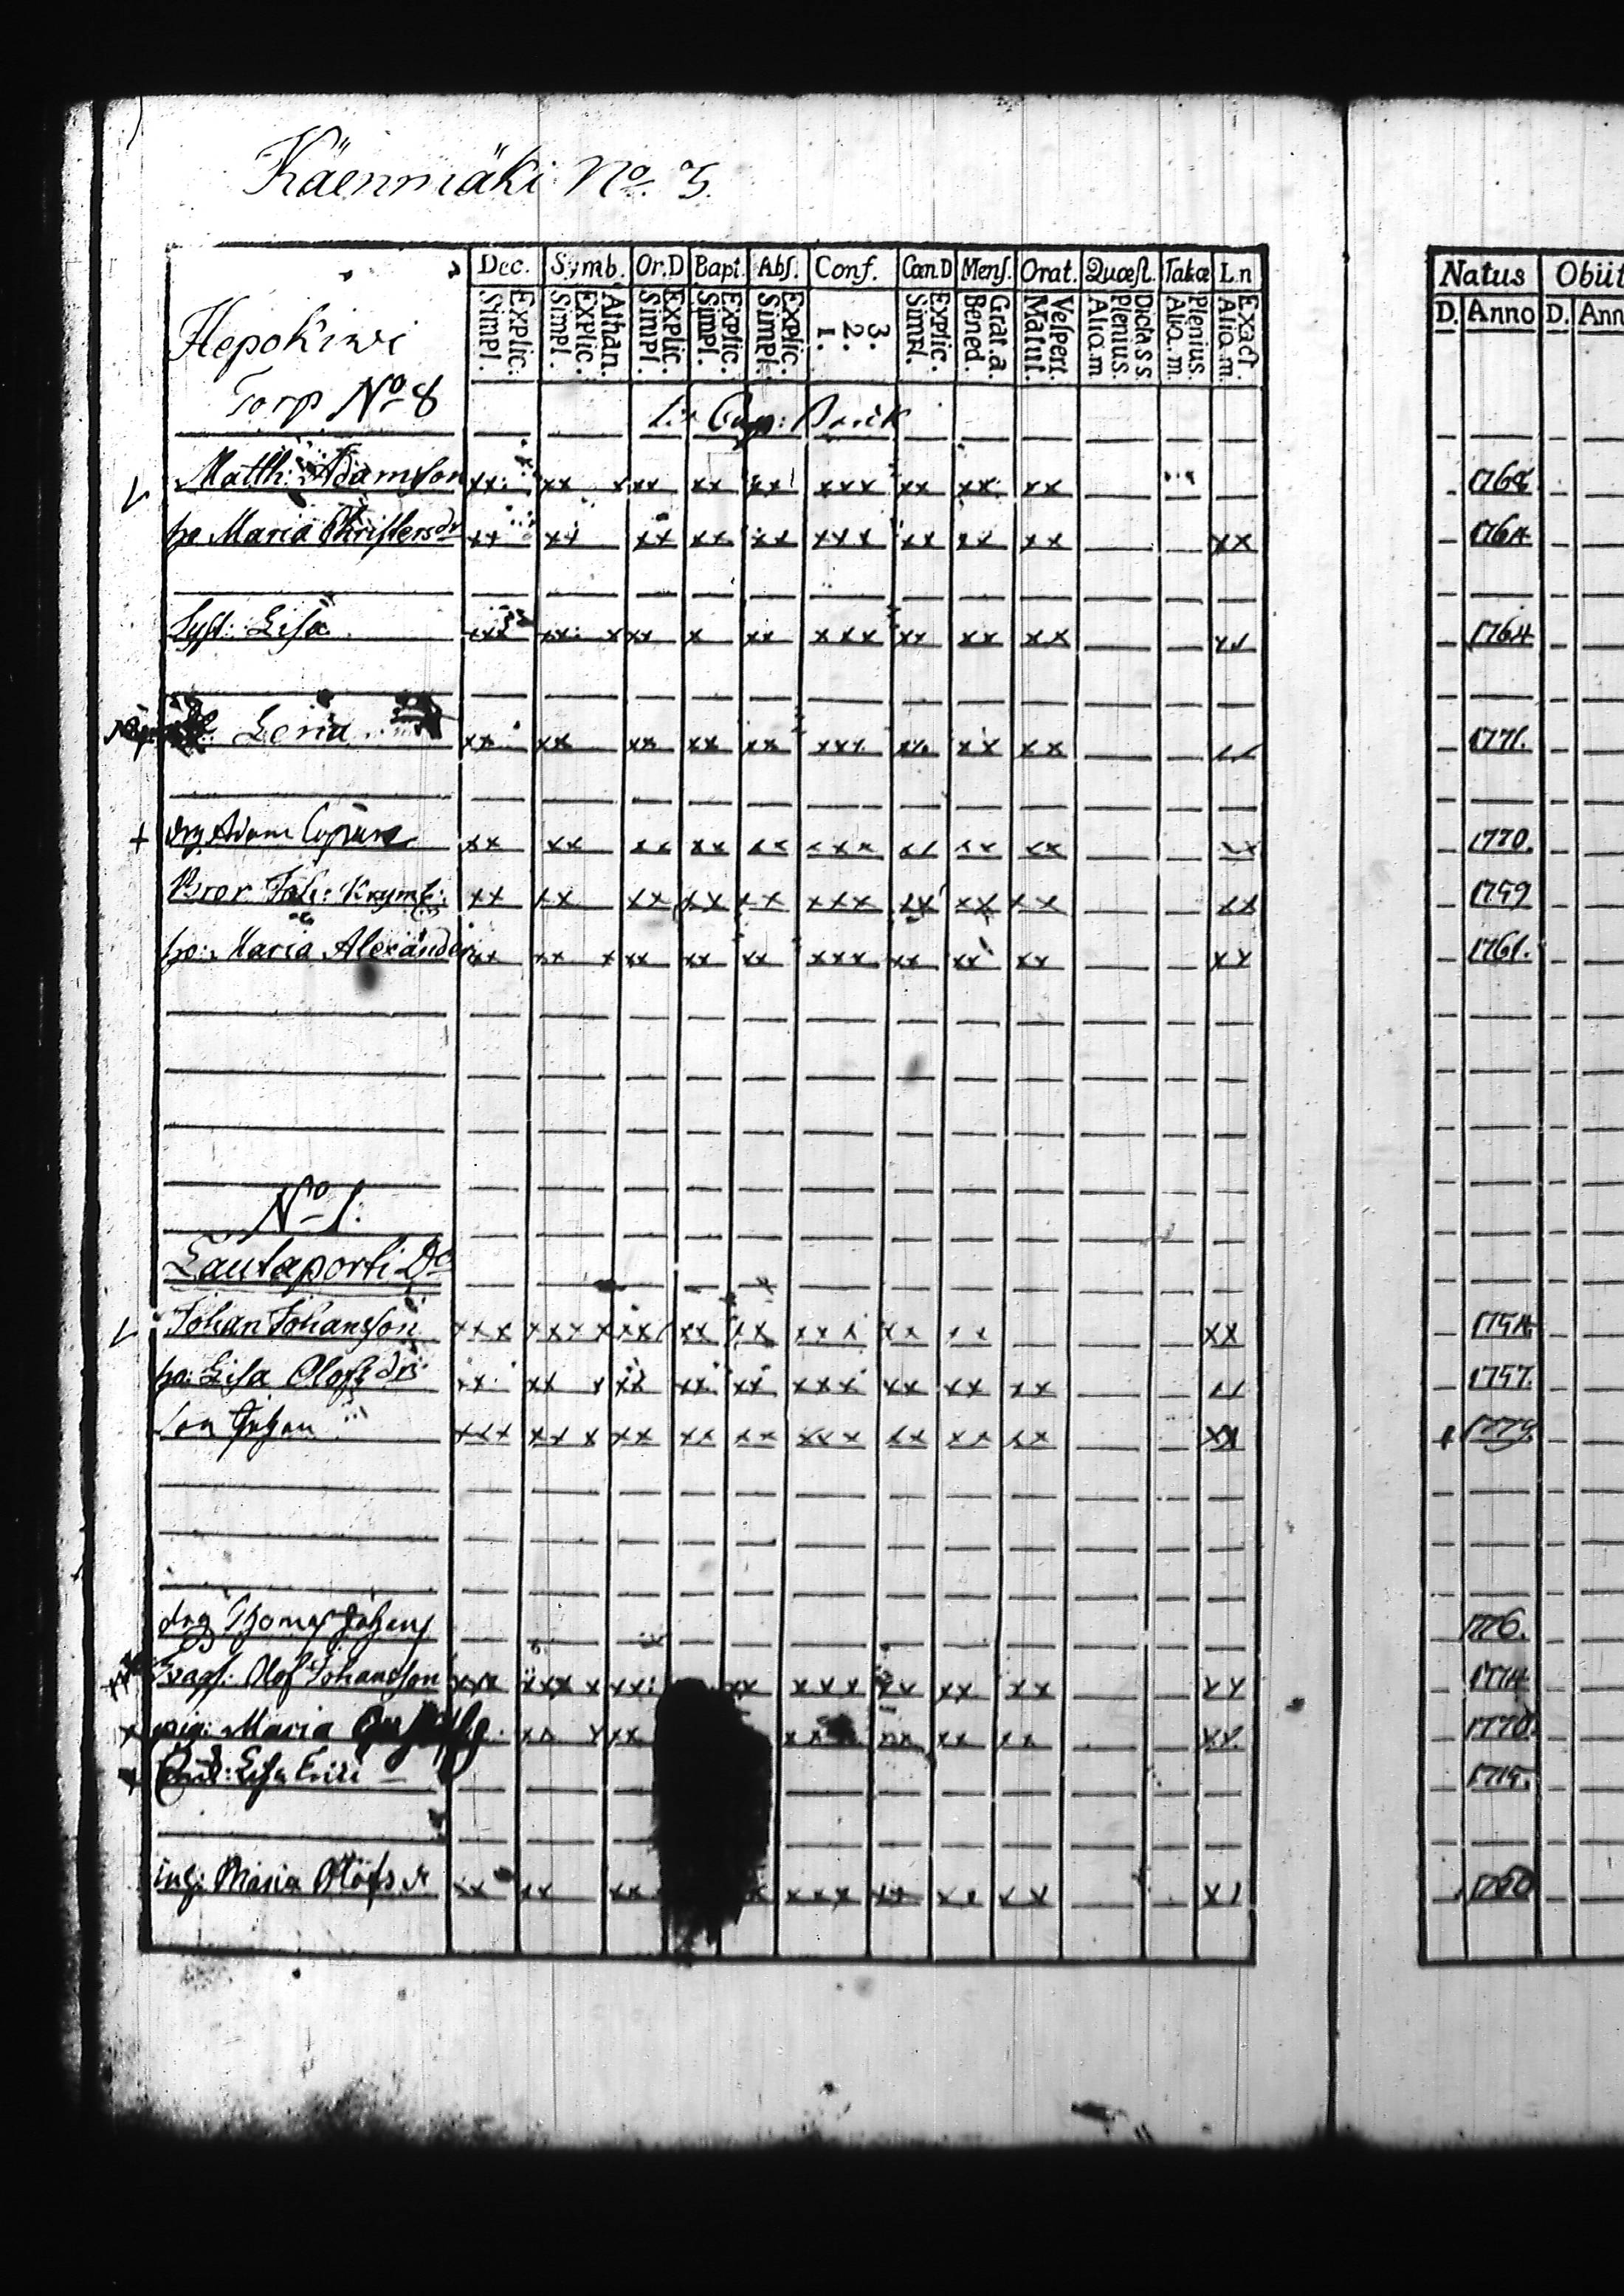 Käenmäki No. 3.
Dec. Symb. Or.D Bapt. Abſ. Conf. Cœn D Menſ. Orat. Quæſt. Takæ L.n Natus Obiit
Explic. Simpl. Athan. Explic. Simpl. Explic. Simpl. Explic. Simpl. Explic. Simpl. 3. 2. 1. Explic. Simpl. Grat. a. Bened. Veſpert. Matut. Dicta s s. Plenius. Aliq. m Plenius. Aliq. m. Exact. Aliq. m. D. Anno D. Ann
Hepokiwi
Torp No 8
Matth: Adamsson xx xx x xx xx xx xxx xx xx xx 1768
ho Maria Christersdr xx xx xx xx xx xxx xx xx xx xx 1764
Syst: Lisa xxx xx x xx x xx xxx xx xx xx xx 1764
Lena xx xx xx xx xx xxx xx xx xx 1771.
+ drg Adam xx xx xx xx xx xxx xx xx xx xx 1770.
Bror Joh: xx xx xx xx xx xxx xx xx xx xx 1759
ho: Maria Alexander xx xx x xx xx xx xxx xx xx xx xx 1761.
No 1:
Lautaporti Do
Johan Johansson xxx xxxx xx xx xx xxx xx xx xx 1754
ho: Lisa Olofsdr xx xx x xx xx xx xxx xx xx xx xx 1757.
Son Johan xxx xx x xx xx xx xxx xx xx xx xx 1779
drg Thomas Johans 1776.
Olof Johansson xxx xxx x xx xx xxx xx xx xx xx 1774
x pig: Maria xx x xx xx xx xx xx xx 1770
+ Lisa Erici 1715.
ing: Maria Olofs dr xx xx xx x xxx xx xx xx xx 1760